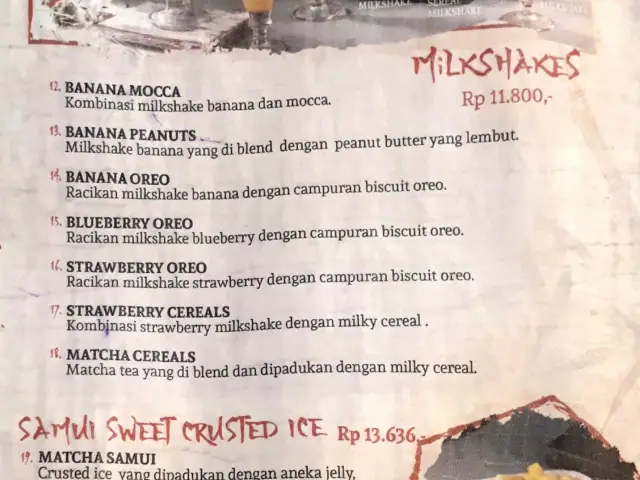 MILKSHAKE
CEREAL
MILKSHAKE
MILKSHAKE
MiLKSHAKES
Rp 11.800,-
12. BANANA MOCCA
Kombinasi milkshake banana dan mocca.
13. BANANA PEANUTS
Milkshake banana yang di blend dengan peanut butter yang lembut.
14. BANANA OREO
Racikan milkshake banana dengan campuran biscuit oreo.
15. BLUEBERRY OREO
Racikan milkshake blueberry dengan campuran biscuit oreo.
16. STRAWBERRY OREO
Racikan milkshake strawberry dengan campuran biscuit oreo.
17. STRAWBERRY CEREALS
Kombinasi strawberry milkshake dengan milky cereal .
18. MATCHA CEREALS
Matcha tea yang di blend dan dipadukan dengan milky cereal.
SAMUI SWEET CRUSTED ICE Rp 13.636,-
19. MATCHA SAMUI
Crusted ice yang dipadukan dengan aneka jelly,